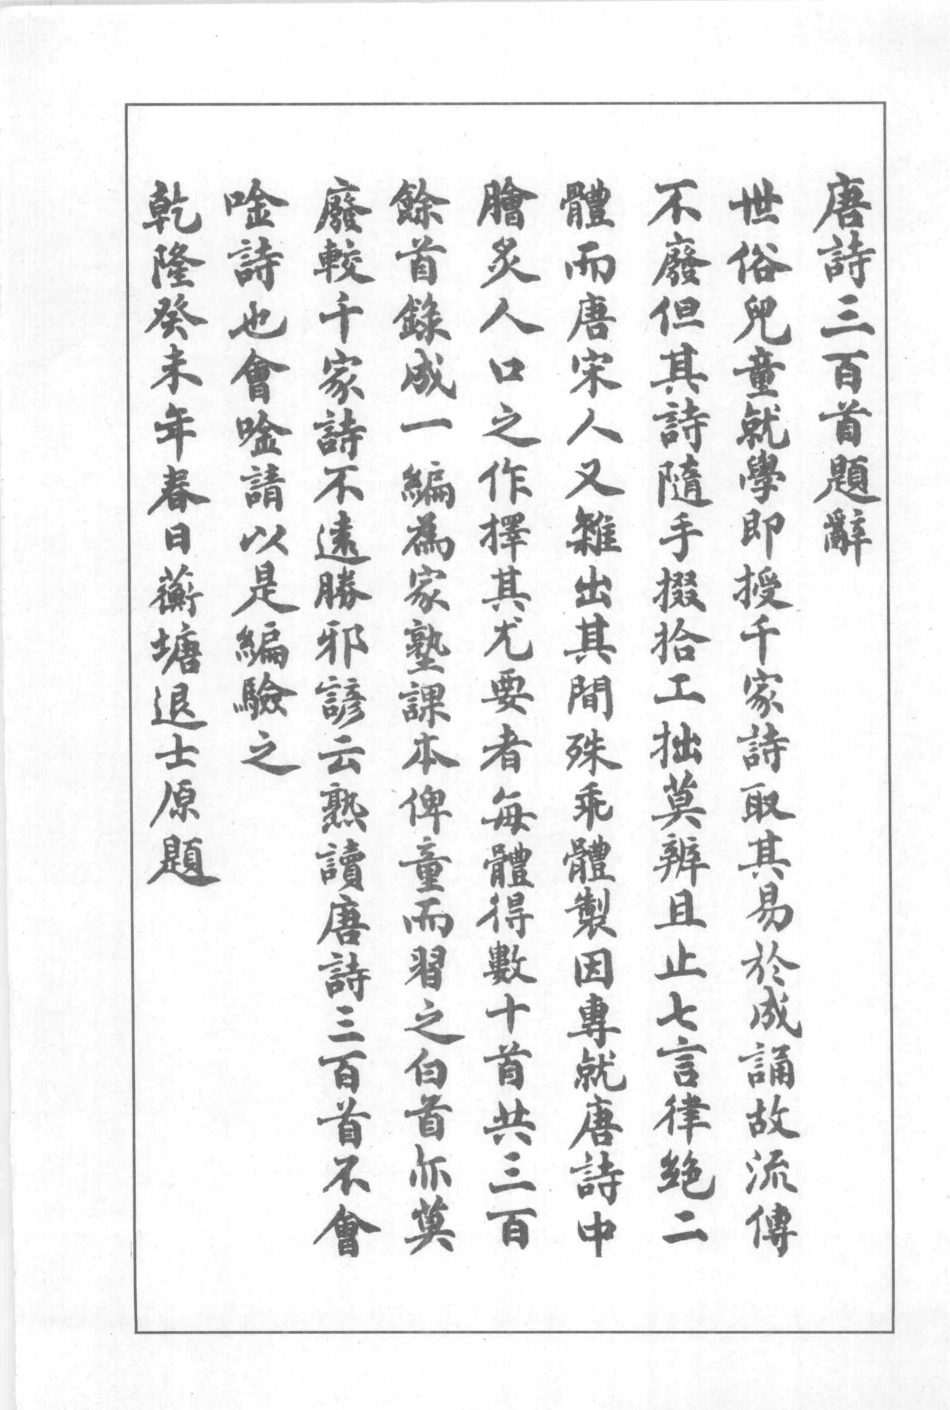 唐詩三百首題辭
世俗兒童就學即授千家詩取其易於成誦故流傳
不廢但其詩隨手掇拾工拙莫辨且止七言律絶二
體而唐宋人又雜出其間殊乖體製因專就唐詩中
膾炙人口之作擇其尤要者每體得數十首共三百
餘首錄成一編為家塾課本俾童而習之白首亦莫
廢較千家詩不遠勝邪諺云熟讀唐詩三百首不會
唫詩也會唫請以是編驗之
乾隆癸未年春日蘅塘退士原題